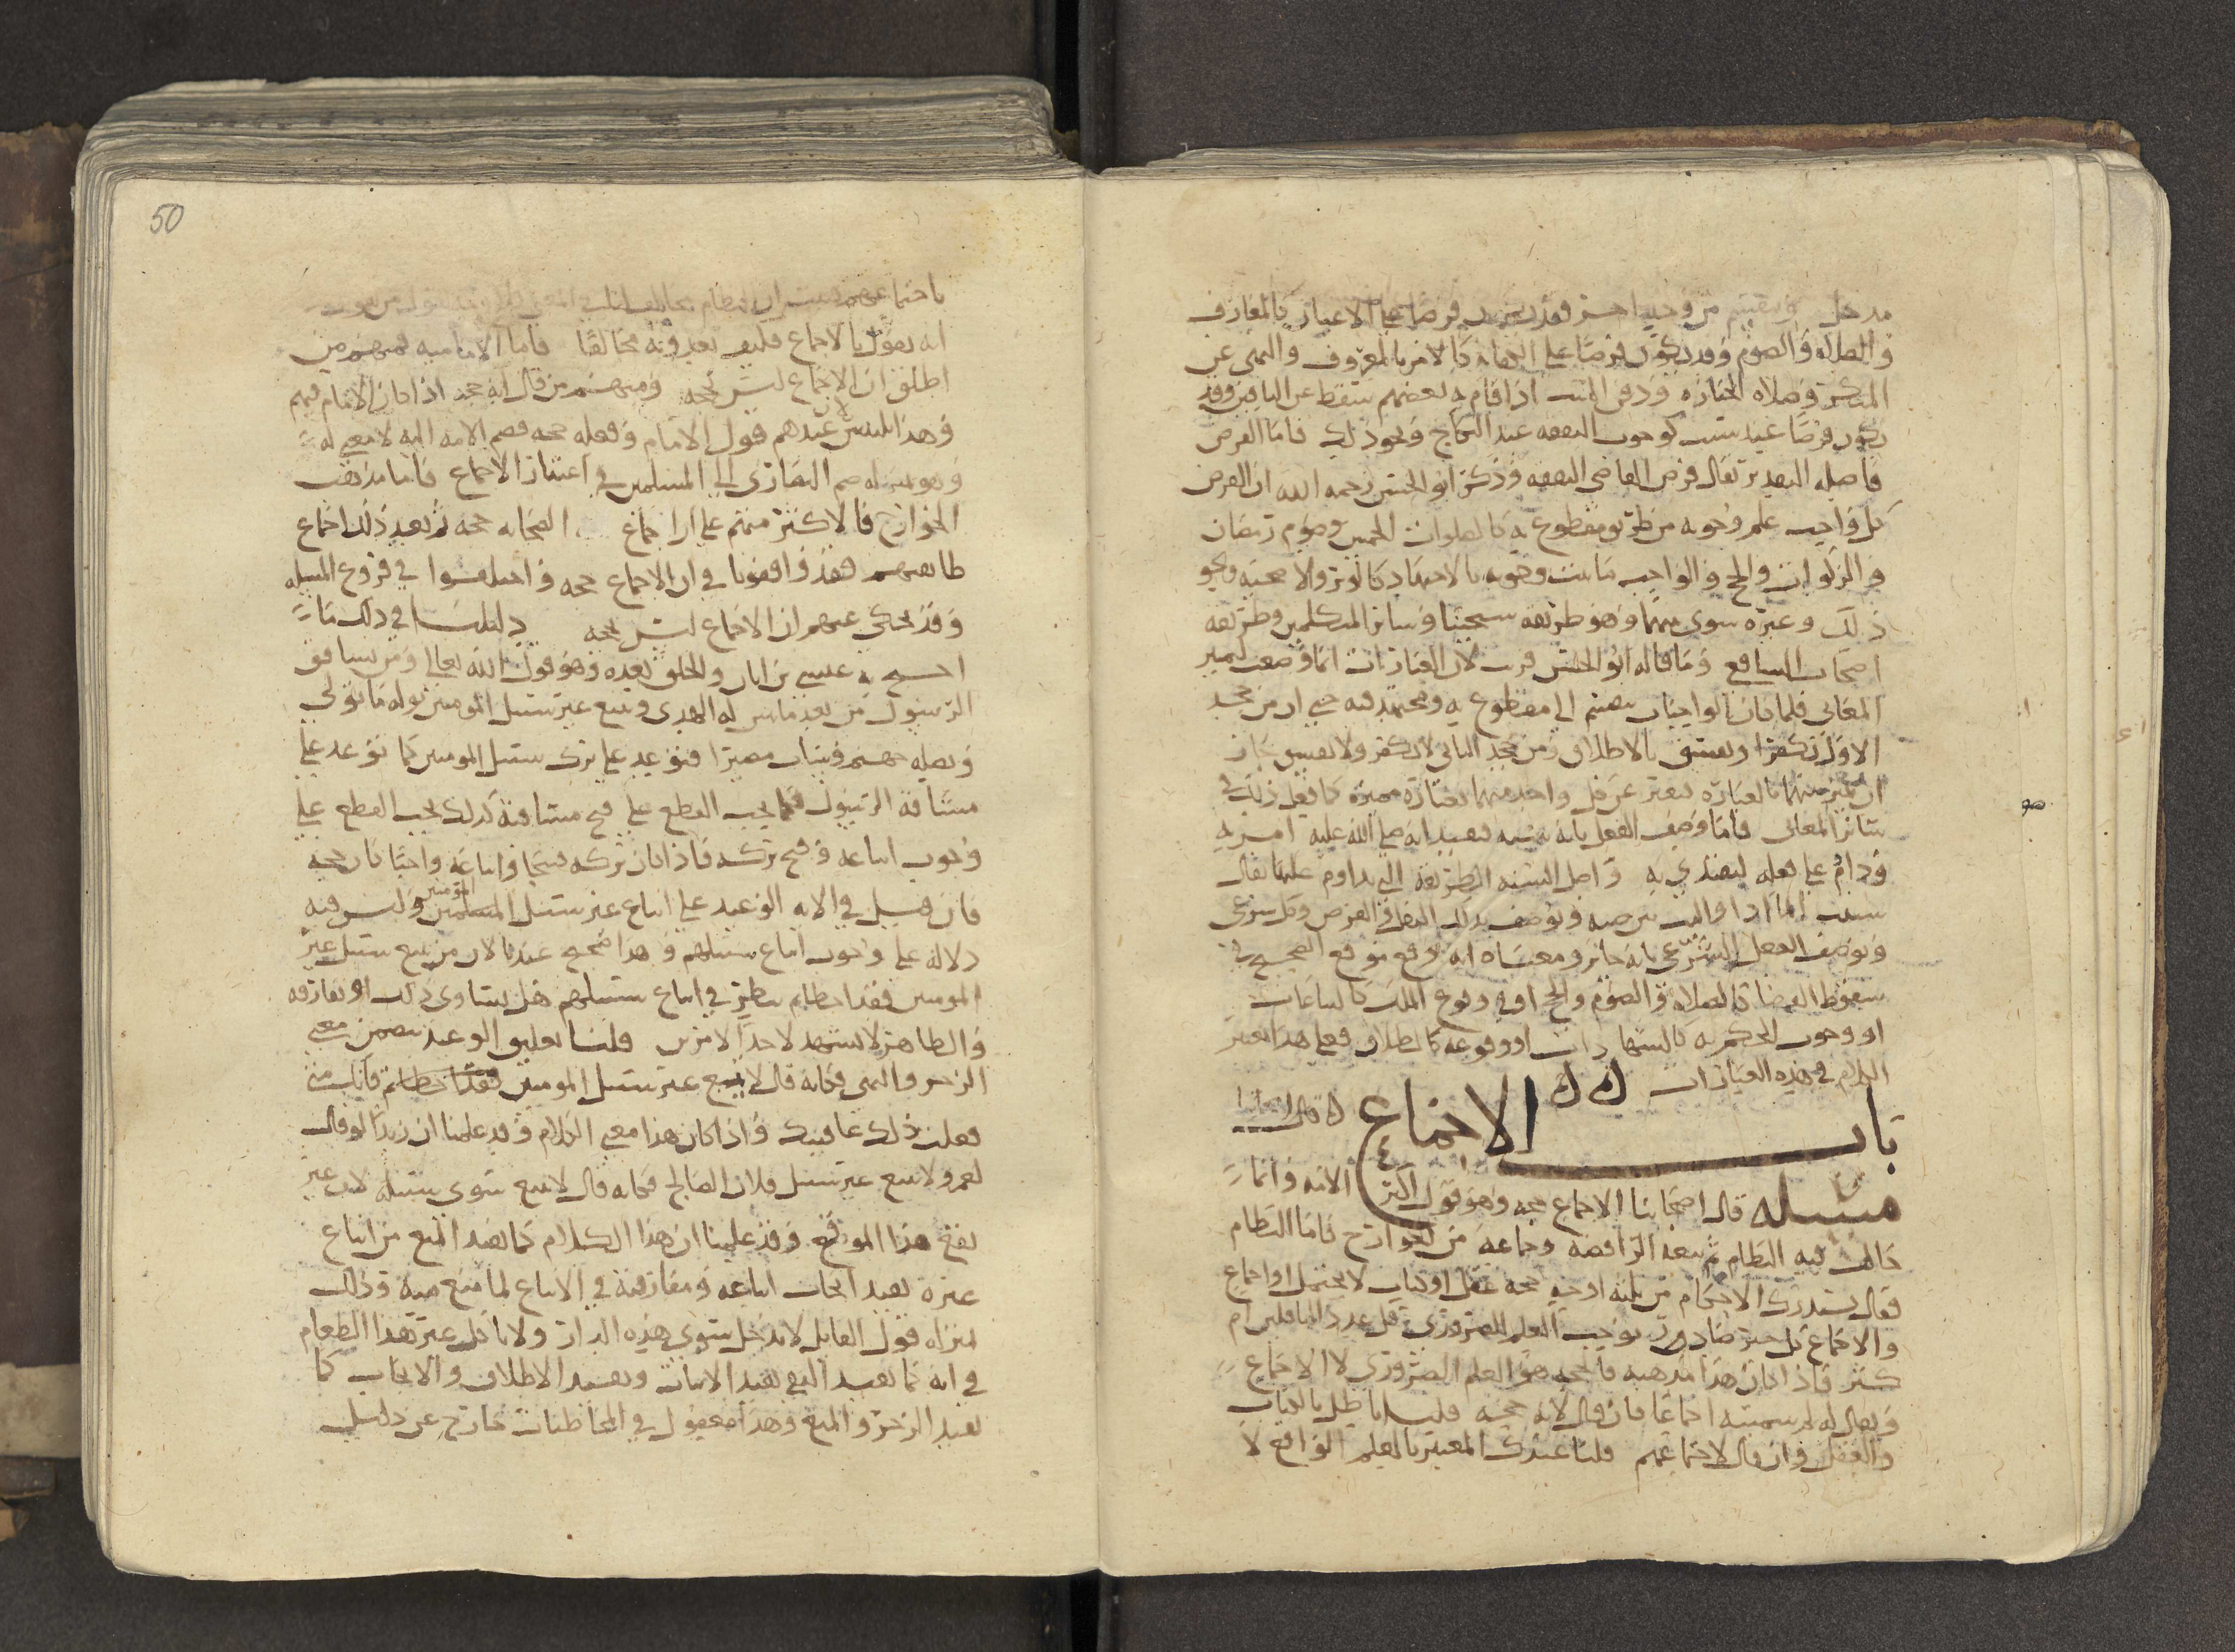 مدخل وينقسم من وجه اخر فقد يكون فرضا على الاعيان كالمعارف
والصلاه والصوم وقد يكون فرضا على الكفايه كالامر بالمعروف والنهى عن
المنكر وصلاه الجنازه ودفن الميت اذا قام به بعضهم سقط عن الباقين وقد
يكون فرضا عند سبب كوجوب النفقه عند النكاح ونحو ذلك فاما الفرض
فاصله التقدير يقال فرض القاضى النفقه وذكر ابو الحسين رحمه الله ان الفرض
كل واجب علم وجوبه من طريق مقطوع به كالصلوات الخمس وصوم رمضان
والزكوات والحج والواجب ما ثبت وجوبه بالاجتهاد كالوتر والاضحيه ونحو
ذلك وغيره سوى بينهما وهو طريقه شيخنا وسائر المتكلمين وطريقه
اصحاب الشافعى وما قاله ابو الحسين قريب لان العبارات انما وضعت لتمييز
المعانى فلما كان الواجبات تنقسم الى مقطوع به ومجتهد فيه حتى ان من جحد
الاول يكفر او يفسق بالاطلاق ومن جحد الثانى لا يكفر ولا يفسق جاز
ان يميز بينهما بالعباره فيعبر عن كل واحد منهما بعباره مميزه كما فعل ذلك فى
سائر المعانى فاما وصف الفعل بانه سنه فيفيد انه صلى الله عليه امر به
ودام على فعله ليقتدى به واصل السنه الطريقه التى يداوم عليها يقال
سننت الماء اذا واليت بين صبه ويوصف بذلك النفل والفرض وكل شرعى
ويوصف الفعل الشرعى بانه جائز ومعناه انه وقع موقع الصحيح فى
سقوط القضا كالصلاه والصوم والحج او فى وقوع الملك كالبياعات
او وجوب الحكم به كالشهادات او وقوعه كالطلاق فعلى هذا يعتبر
الكلام فى هذه العبارات
باب الاجماع
مسئله قال اصحابنا الاجماع حجه وهو قول اكثر الامه وانما
خالف فيه النظام ثم بعد الرافضه وجماعه من الخوارج فاما النظام
فقال يستدرك الاحكام من ثلثه اوجه حجه عقل او كتاب لا يحتمل او اجماع
والاجماع كل خبر صادق يوجب العلم الضرورى قل عدد الناقلين ام
كثر فاذا كان هذا مذهبه فالحجه هو العلم الضرورى لا الاجماع
ويقال له لم سميته اجماعا فان قال لانه حجه قلنا باطل بالكتاب
والعقل وان قال لاجماعهم قلنا عندك المعتبر بالعلم الواقع لا
50
باجماعهم
انه يقول بالاجماع فكيف يعدونه مخالفا فاما الاماميه فمنهم من
اطلق ان الاجماع ليس بحجه ومنهم من قال انه حجه اذا كان الامام فيهم
وهذا تلبيس لان عندهم قول الامام وفعله حجه فضم الامه اليه لا معنى له
وهو بمنزله ضم النصارى الى المسلمين فى اعتبار الاجماع فاما مذهب
الخوارج فالاكثر منهم على ان اجماع الصحابه حجه ثم بعد ذلك اجماع
طائفتهم فقد وافقونا فى ان الاجماع حجه واختلفوا فى فروع المسئله
وقد حكى عنهم ان الاجماع ليس بحجه دليلنا فى ذلك ما
احتج به عيسى بن ابان والخلق بعده وهو قول الله تعالى ومن يشاقق
الرسول من بعد ما تبين له الهدى ويتبع غير سبيل المومنين نوله ما تولى
ونصله جهنم وساءت مصيرا فتوعد على ترك سبيل المومنين كما توعد على
مشاقه الرسول فكما يجب القطع على قبح مشاقته كذلك يجب القطع على
وجوب اتباعه وقبح تركه فاذا كان تركه قبيحا واتباعه واجبا كان حجه
فان قيل فى الايه الوعيد على اتباع غير سبيل المسلمين المومنين وليس فيه
دلاله على وجوب اتباع سبيلهم وهذا صحيح عندنا لان من يتبع سبيل غير
المومنين فقد اخطا ثم ينظر فى اتباع سبيلهم هل يساوى ذلك او يفارقه
والظاهر لا يشهد لاحد الامرين قلنا تعليق الوعيد يتضمن معنى
الزجر والنهى فكانه قال لا يتبع غير سبيل المومنين فانك متى
فعلت ذلك عاقبتك واذا كان هذا معنى الكلام وقد علمنا ان زيدا لو قال
لعمرو لا تتبع غير سبيل فلان الصالح فكانه قال لا تتبع سوى سبيله لان غير
يقع هذا الموقع وقد علمنا ان هذا الكلام كما يفيد المنع من اتباع
غيره يفيد ايجاب اتباعه ومفارقته فى الاتباع لما منع منه وذلك
بمنزله قول القايل لا تدخل سوى هذه الدار ولا تاكل غير هذا الطعام
فى انه كما يفيد النفى يفيد الاثبات ويفيد الاطلاق والايجاب كما
يفيد الزجر والمنع وهذا معقول فى المخاطبات خارج عن دليل